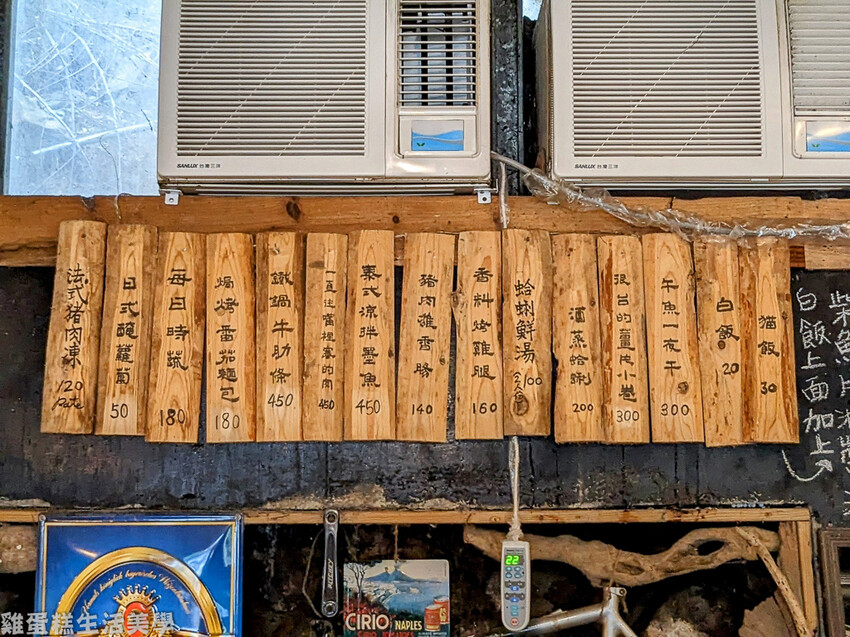 SANLUX 台灣三洋
SANLUX 台灣三洋
法式豬肉凍 120
日式醃蘿蔔 50
每日時蔬 180
焗烤番茄麵包 180
鐵鍋牛肋條 450
一直往嘴裡塞的肉 450
泰式涼拌墨魚 450
豬肉雞香腸 140
香料烤雞腿 160
蛤蜊鮮湯 100
酒蒸蛤蜊 200
很台的薑皮小卷 300
午魚一夜干 300
白飯 20
貓飯 30
白飯上面加上
22
CIRIO
NAPLES
雞蛋糕生活美學